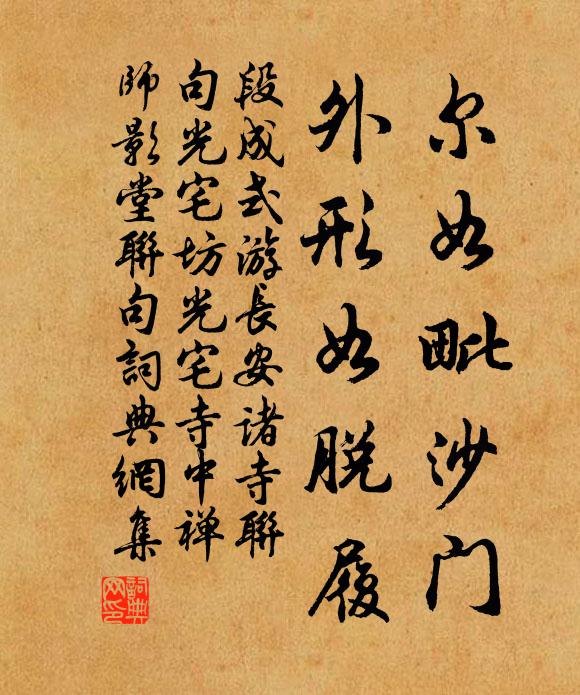 尔如毗沙门
外形如脱履
段成式游长安诸寺聯
句光宅坊光宅寺中禅
师影堂聯句詞典網集
詞典網印